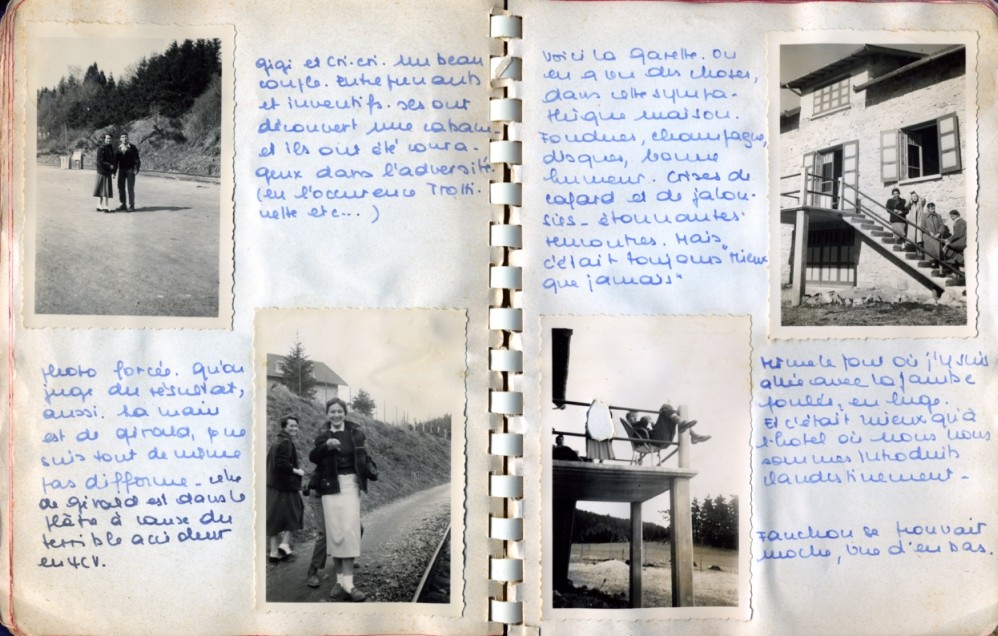 gigi et Cri-cri. Un beau
couple. Entreprenants
et inventifs. Ses ont
découvert une caban
et ils ont été coura-
geux dans l'adversité
(en l'occurence Trotti-
nette etc... )
Photo forcée. qu'on
juge du résultat,
aussi. La main
est de girald, je ne
suis tout de même
pas difforme - celle
de girald est dans le
plâtre à cause du
terrible accident
en 4CV.
Voici la garette. On
en a vu des choses,
dans cette sympa-
thique maison.
Fondues, champagne,
disques, bonne
humeur. Crises de
cafard et de jalou-
sies - étonnantes
rencontres. Mais
c'était toujours "mieux
que jamais"
Même le jour où j'y suis
allée avec la jambe
foulée, en luge.
Et c'était mieux qu'à
l'hôtel où nous nous
sommes introduits
clandestinement -
Fanchon se trouvait
moche, vue d'en bas.